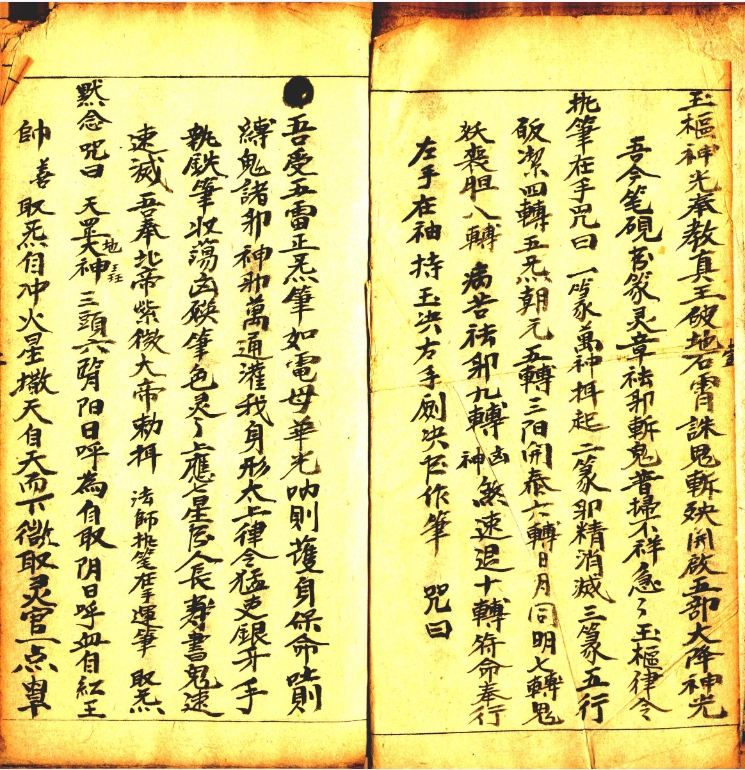 玉樞神光奉教真王破地召霄誅鬼斬殃開啟五部大降神光
吾今笔硯書篆灵章祛卯斬鬼普掃不祥急々玉樞律令
执筆在手咒曰 一篆萬神拱起二篆卯精消滅三篆五行
皈潔四轉五炁朝元五轉三阳開泰六轉日月同明七轉鬼
妖喪胆八轉病苦祛卯九轉凶神煞速退十轉符命奉行
左手在袖持玉决右手劍决匠作筆 咒曰
吾受五雷正炁筆如電母華光呐則護身保命吐則
縛鬼諸卯神卯萬通灌我身形太上律令猛吏銀牙手
執鉄筆收蕩凶殃筆色灵々上應台星居人長寿書鬼速
速滅吾奉北帝紫微大帝勅拱 法師执笔在手運筆 取炁
默念咒曰 天罡大神地 三頭六臂阳日呼為自取阴日呼血自紅王
帥 善 取炁自冲火星撒天自天而下微取灵官一点草